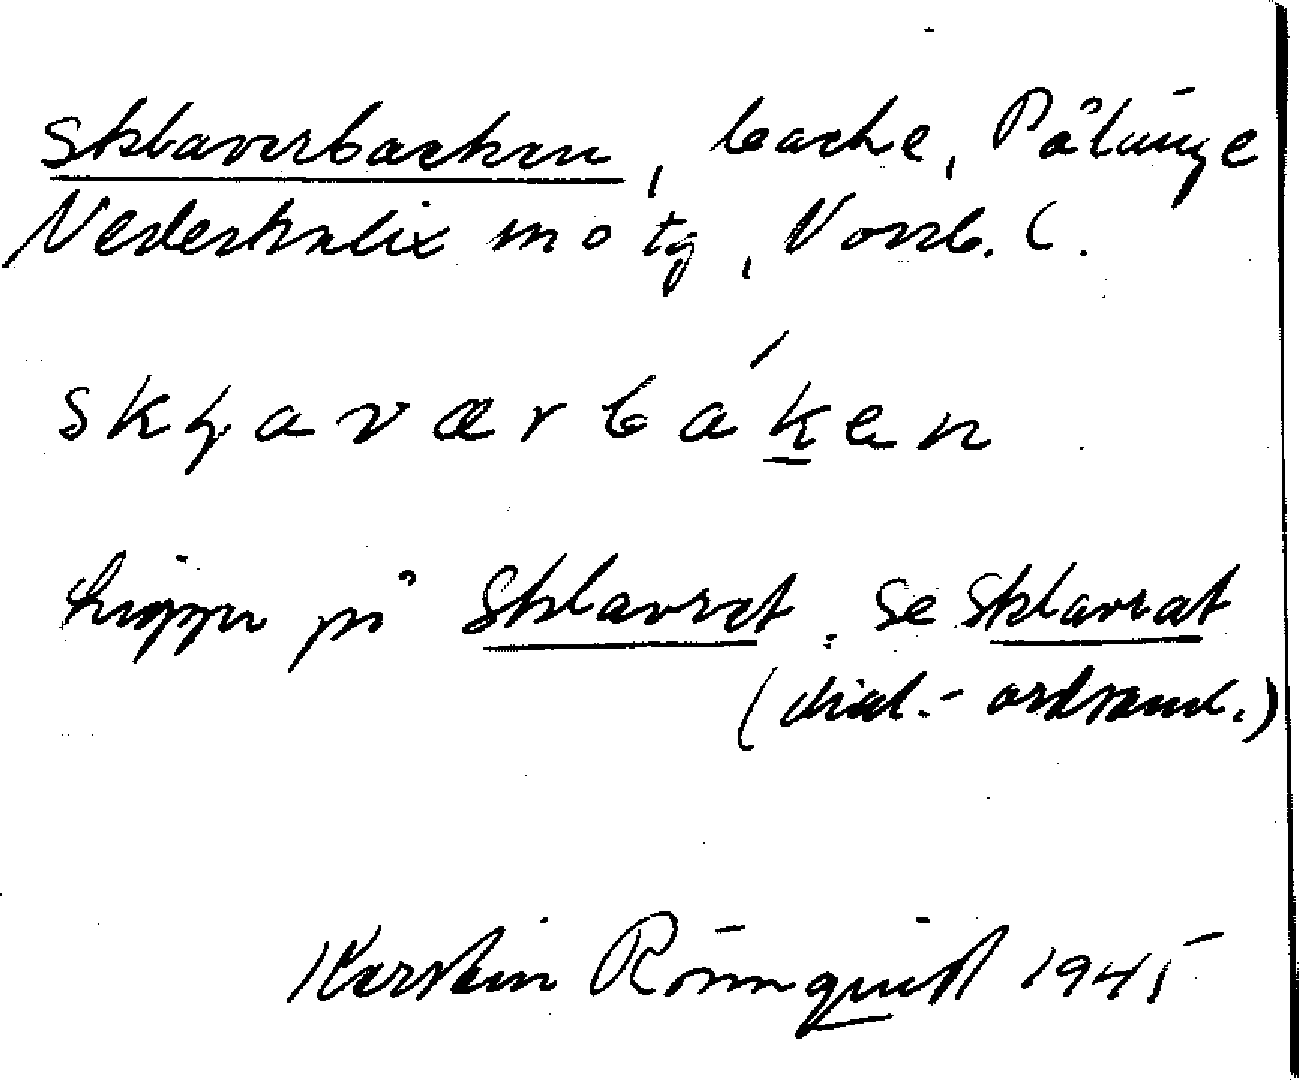 Sklaverbacken, backe, Pålänge
Nederkalix sn o tg, Norrb. l.
skḷaværbáken
ligger på Sklavret. Se Sklavrat
(dial.-ordsaml.)
Kerstin Rönnquist 1945